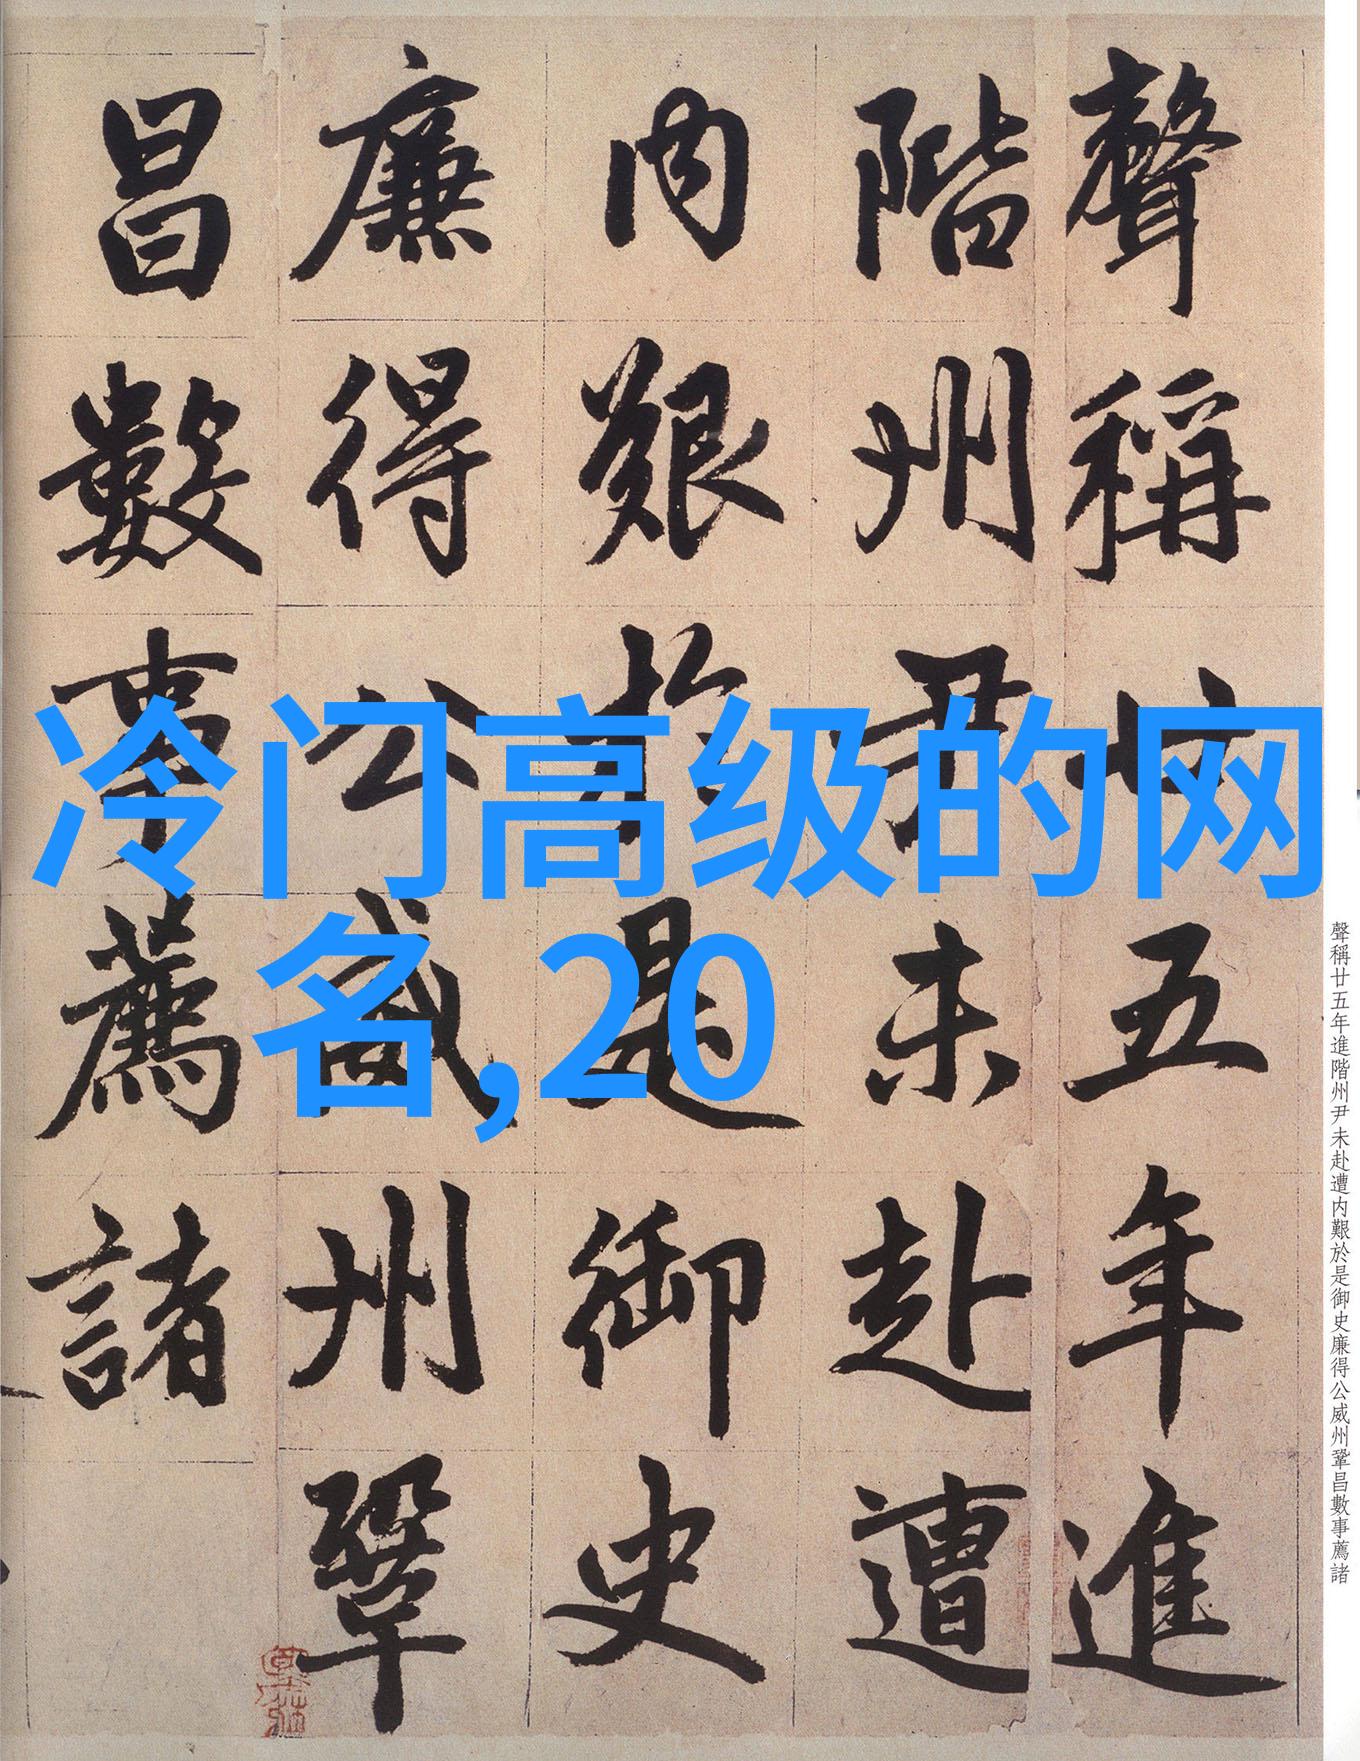 聲稱廿五年進
階州尹未赴遭
内艱於是御史
廉得公威州鞏
昌數事薦諸
冷门高级的网
名,20
聲稱廿五年進階州尹未赴遭内艱於是御史廉得公威州鞏昌數事薦諸